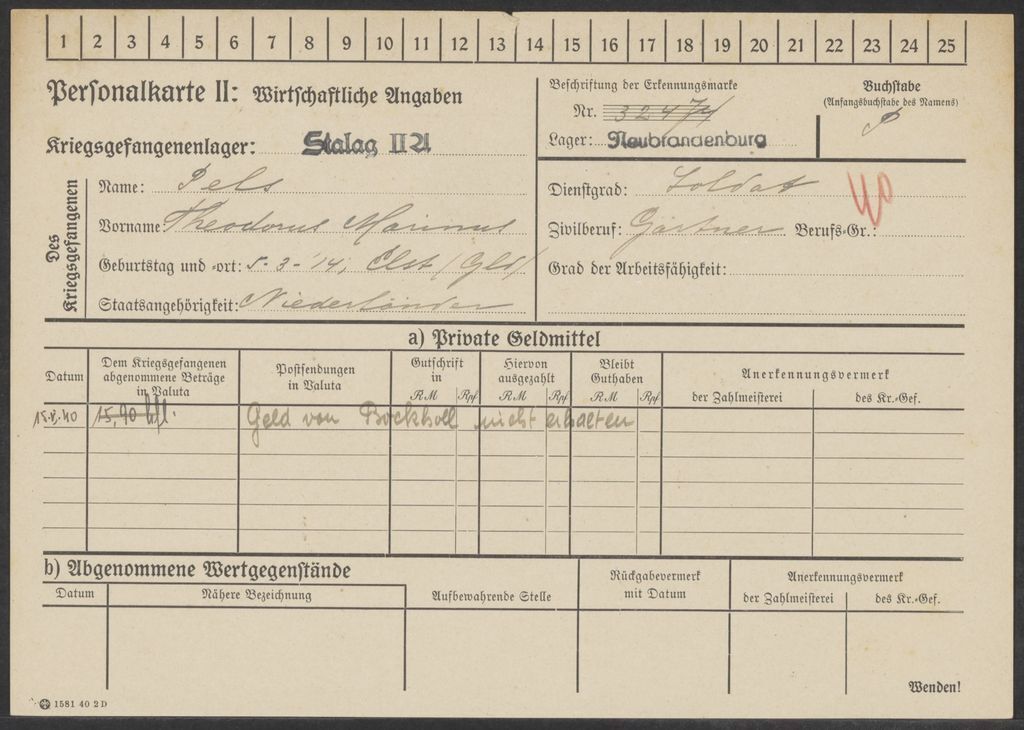 1 2 3 4 5 6 7 8 9 10 11 12 13 14 15 16 17 18 19 20 21 22 23 24 25
Personalkarte II: Wirtschaftliche Angaben
Kriegsgefangenenlager: Stalag II A
Beschriftung der Erkennungsmarke
Nr. 32474
Lager: Neubrandenburg
Buchstabe
(Anfangsbuchstabe des Namens)
P
Des Kriegsgefangenen
Name: Pels
Vorname Theodorus Marinus
Geburtstag und -ort: 5-3-'14, Elst (Gld)
Staatsangehörigkeit: Niederländer
Dienstgrad: Soldat
Zivilberuf: Gärtner Berufs-Gr.:
Grad der Arbeitsfähigkeit:
a) Private Geldmittel
Datum
Dem Kriegsgefangenen abgenommene Beträge in Valuta
Postsendungen in Valuta
Gutschrift in
RM Rpf
Hiervon ausgezahlt
RM Rpf
Bleibt Guthaben
RM Rpf
Anerkennungsvermerk
der Zahlmeisterei des Kr.-Gef.
15,90 hfl. Geld von Bockholl nicht erhalten
b) Abgenommene Wertgegenstände
Datum Nähere Bezeichnung
Aufbewahrende Stelle
Rückgabevermerk mit Datum
Anerkennungsvermerk
der Zahlmeisterei des Kr.-Gef.
Wenden!
1581 40 2 D